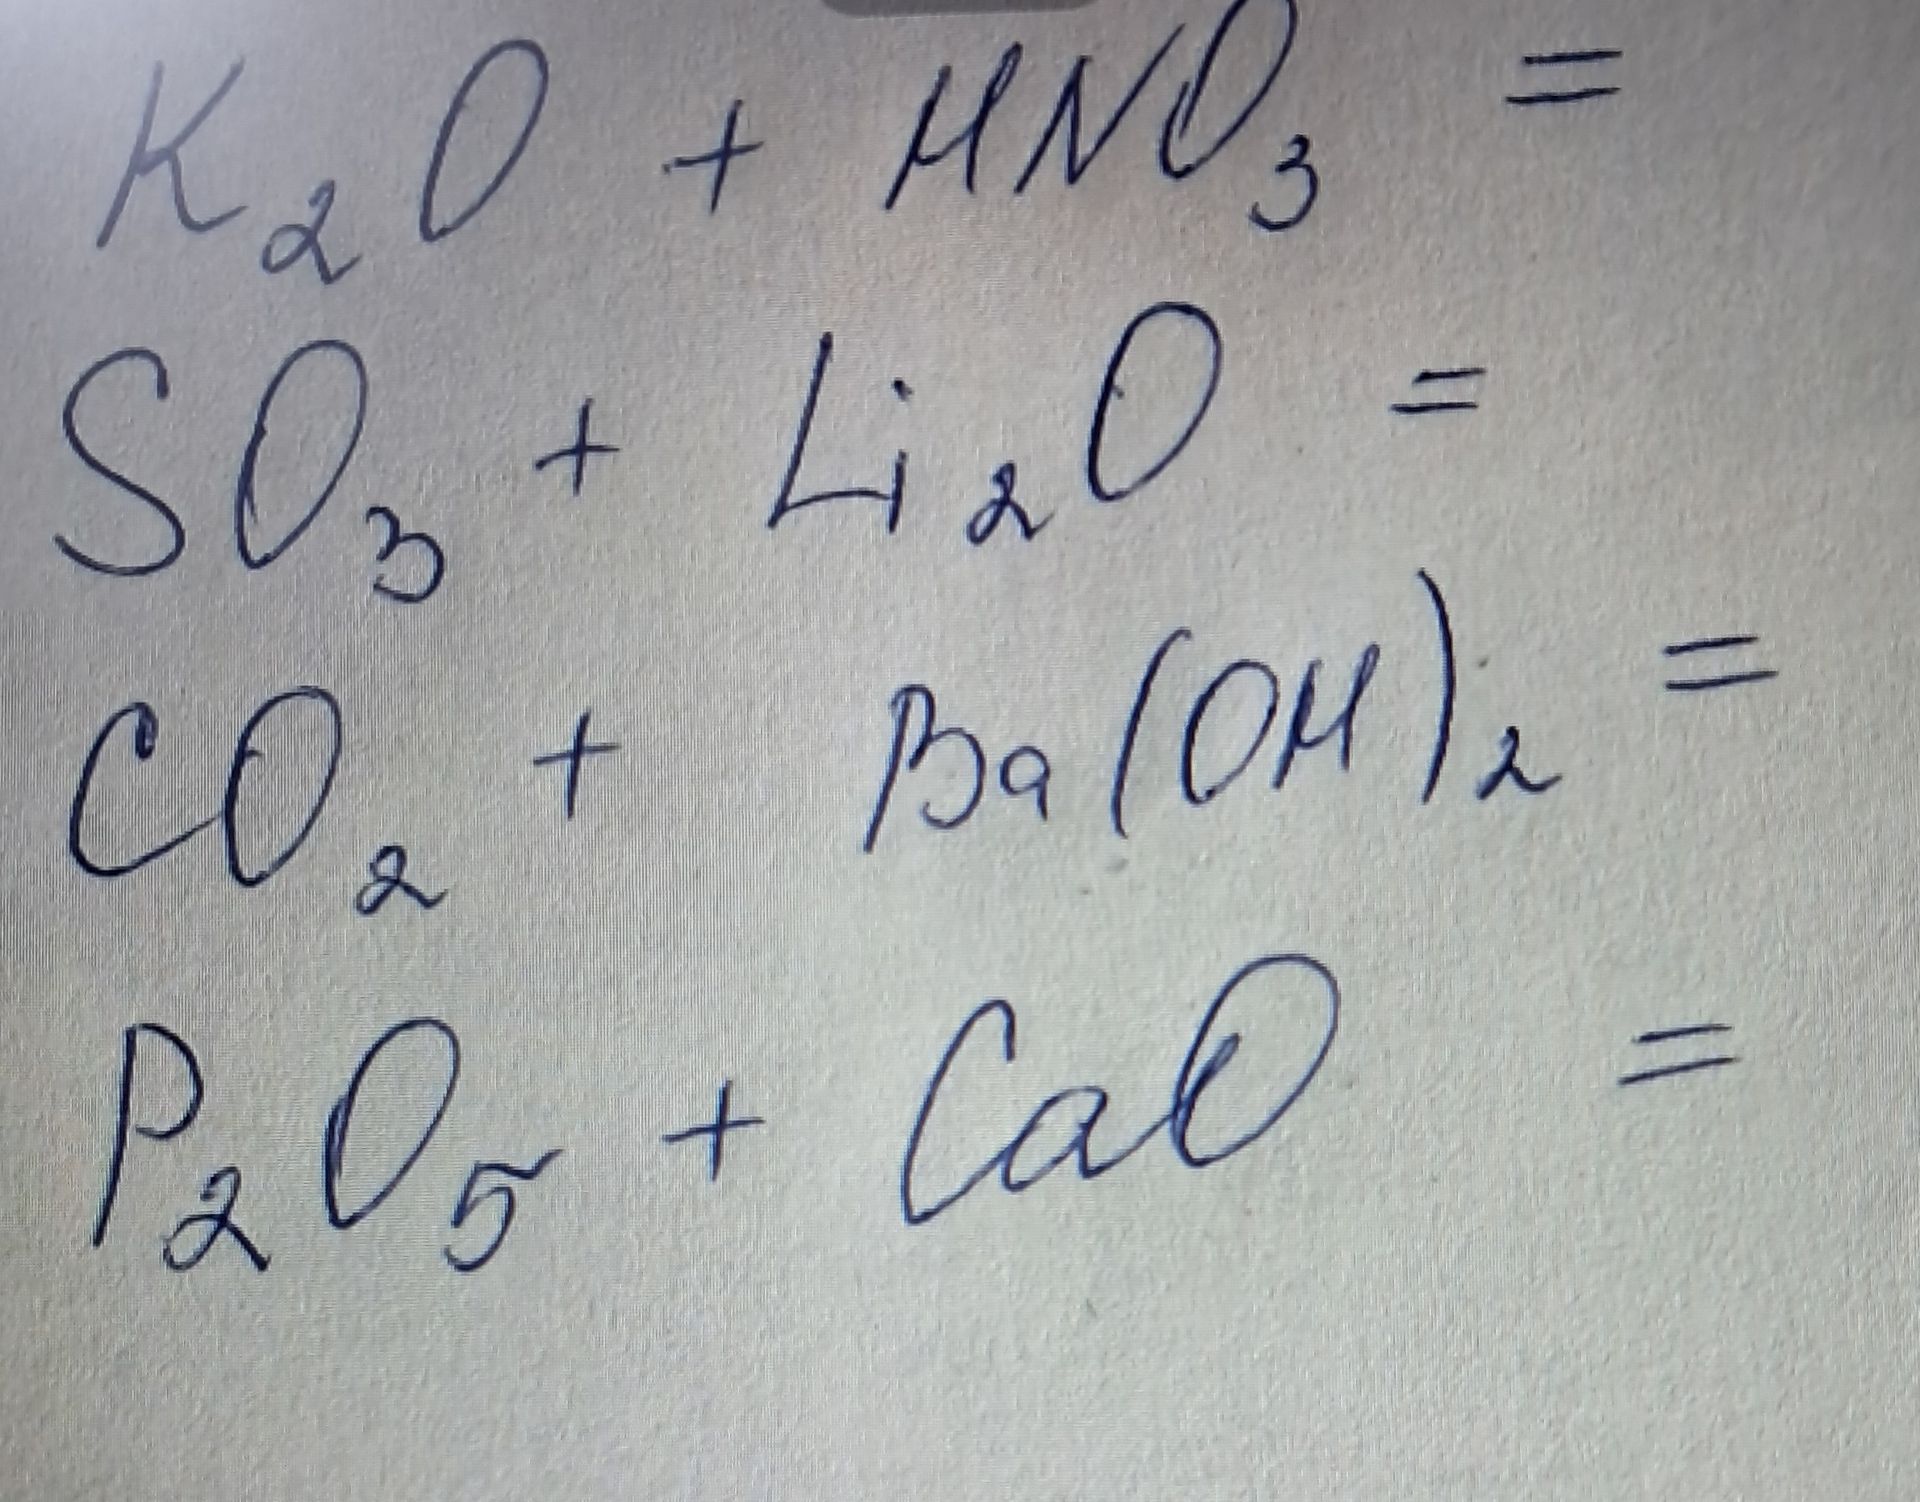 K₂O + HNO₃ =
SO₃ + Li₂O =
CO₂ + Ba(OH)₂ =
P₂O₅ + CaO =